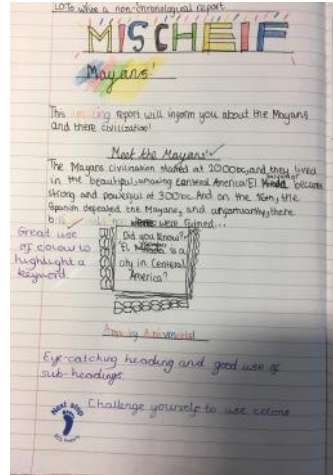 LO:To write a non-chronological report.
MISCHEIF
Mayans'
This amazing report will inform you about the Mayans
and there civilization!
Meet the Mayans'
The Mayans civilization started at 2000bc, and they lived
in the beautiful, amazing Centeral America! El became
strong and powerful at 300bc. And on the 16th, the
Spanish defeated the Mayans, and unfortunatley, there
were ruined...
Great use
of colour to
highlight a
keyword.
Did you know?
'El is a
city in Centeral
America?
Amazing
Eye-catching heading and good use of
sub-headings.
Next step
Challenge yourself to use colons